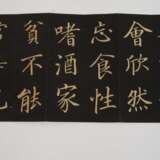 會欣然
忘食性
嗜酒家
貧不能